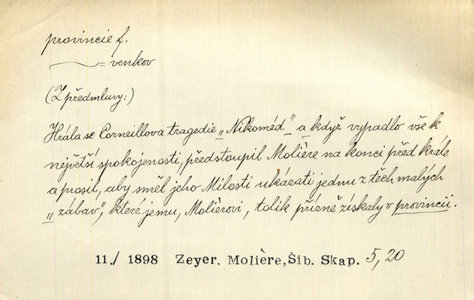 provincie f.
venkov
(Z předmluvy:)
Hrála se Corneillova tragedie „Nikoméd" a když vypadlo vše k
největší spokojenosti, předstoupil Molière na konci před krále
a prosil, aby směl jeho Milosti ukázati jednu z těch malých
„zábav", které jemu, Molièrovi, tolik přízně získaly v provincii.
11./ 1898 Zeyer, Molière, Šib. Skap. 5,20